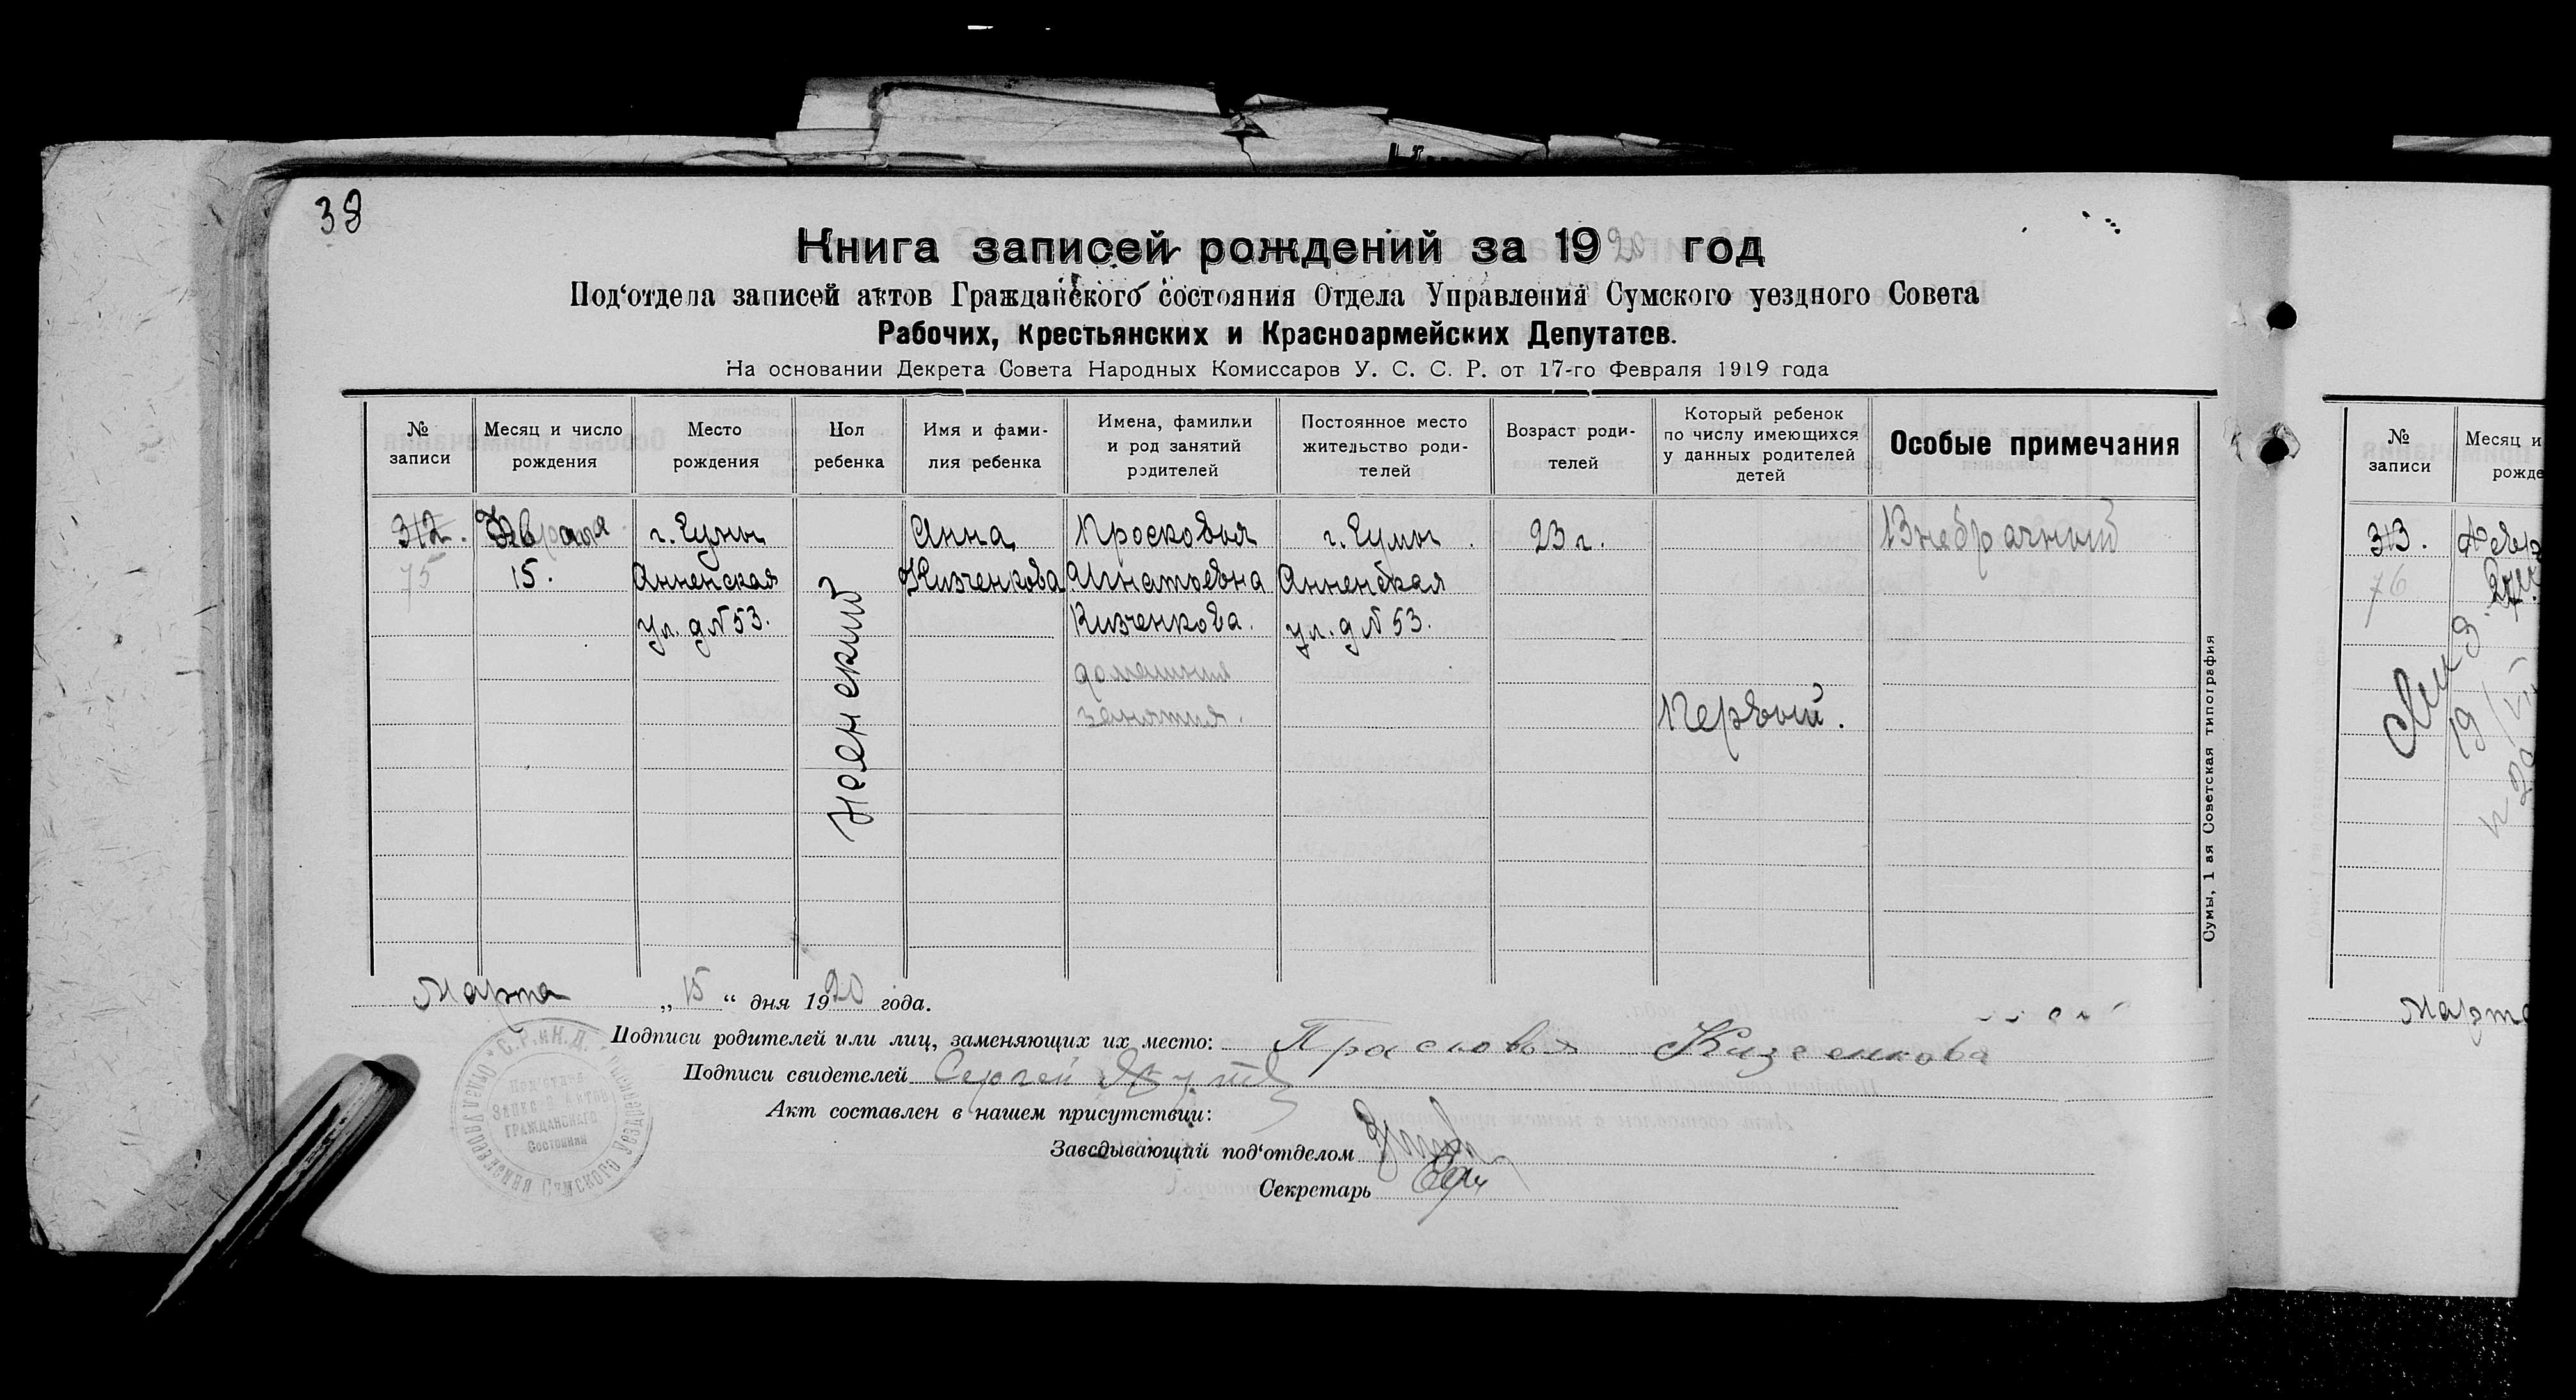 38
Книга записей рождений за 1920 год
Под‘отдела записей актов Гражданского состояния Отдела Управления Сумского уездного Совета
Рабочих, Крестьянских и Красноармейских Депутатов.
На основании Декрета Совета Народных Комиссаров У. С. С. Р. от 17-го Февраля 1919 года
№ записи
Месяц и число рождения
Место рождения
Пол ребенка
Имя и фами- лия ребенка
Имена, фамилии и род занятий родителей
Постоянное место жительство роди- телей
Возраст роди- телей
Который ребенок по числу имеющихся у данных родителей детей
Особые примечания
312.
75
Февраля
15.
г. Сумы
Анненская
ул. д № 53.
Женский
Анна
Кизченкова
Просковья
Игнатьевна
Кизченкова.
домашния
занятия.
г. Сумы
Анненская
ул. д № 53.
23 г.
Первый.
Внебрачный
Сумы, 1 ая Советская типография
Марта „15“ дня 1920 года.
Подписи родителей или лиц, заменяющих их место: Прасковья Кизченкова
Подписи свидетелей Сергей
Акт составлен в нашем присутствии:
Заведывающий под‘отделом
Секретарь
С.Р. и К.Д.
Отдел управления Сумского уездного
Под‘отдел
Записи Актов
Гражданскаго
Состояния
№ записи
Месяц и
рожде
313.
76
19
Марта